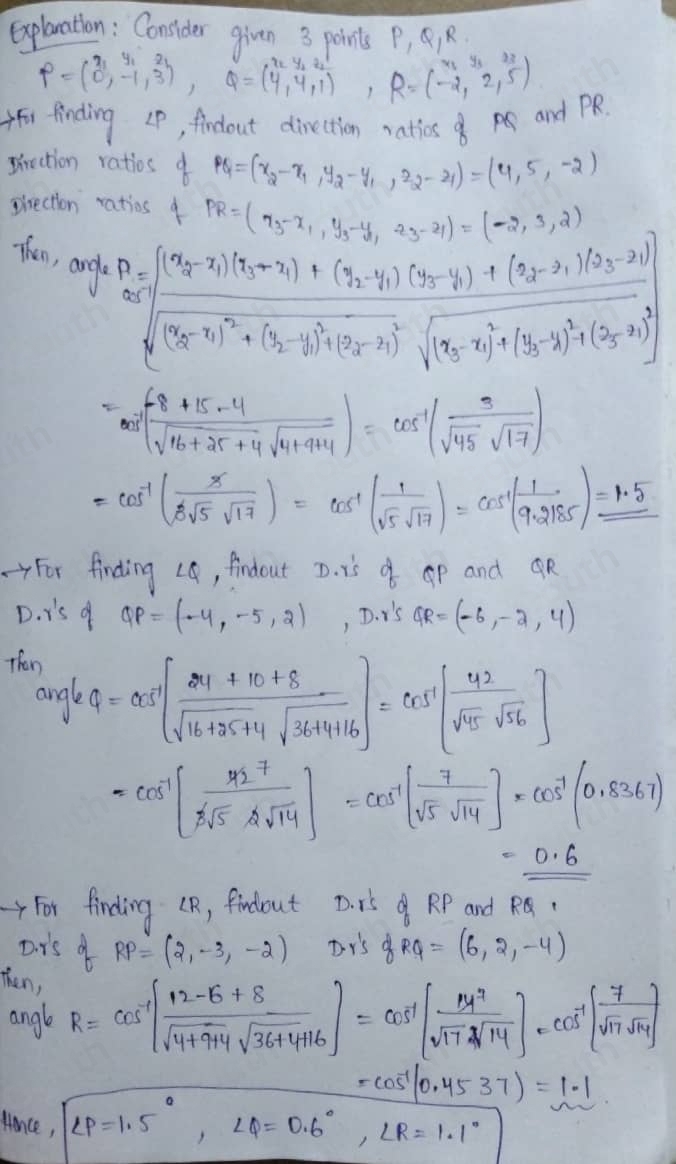 Explanation: Consider given 3 points P, Q, R.
x1 y1 z1 x2 y2 z2 x3 y3 z3
P = (0, -1, 3), Q = (4, 4, 1), R = (-2, 2, 5)
→For finding ∠P, findout direction ratios of PQ and PR.
Direction ratios of PQ = (x2-x1, y2-y1, z2-z1) = (4, 5, -2)
Direction ratios of PR = (x3-x1, y3-y1, z3-z1) = (-2, 3, 2)
Then, angle P = cos⁻¹[(x2-x1)(x3-x1) + (y2-y1)(y3-y1) + (z2-z1)(z3-z1) / √(x2-x1)² + (y2-y1)² + (z2-z1)² √(x3-x1)² + (y3-y1)² + (z3-z1)²]
= cos⁻¹(-8 + 15 - 4 / √16+25+4 √4+9+4) = cos⁻¹(3 / √45 √17)
= cos⁻¹(3 / 3√5 √17) = cos⁻¹(1 / √5 √17) = cos⁻¹(1 / 9.2185) = 1.5
→For finding ∠Q, findout D.r's of QP and QR
D.r's of QP = (-4, -5, 2), D.r's QR = (-6, -2, 4)
Then
angle Q = cos⁻¹[24 + 10 + 8 / √16+25+4 √36+4+16] = cos⁻¹[42 / √45 √56]
= cos⁻¹[42 7 / 3√5 2√14] = cos⁻¹[7 / √5 √14] = cos⁻¹(0.8367)
= 0.6
→ For finding ∠R, findout D.r's of RP and RQ.
D.r's of RP = (2, -3, -2) D.r's of RQ = (6, 2, -4)
Then,
angle R = cos⁻¹[12-6+8 / √4+9+4 √36+4+16] = cos⁻¹[14 7 / √17 2√14] = cos⁻¹[7 / √17 √14]
= cos⁻¹(0.4537) = 1.1
Hence, ∠P = 1.5°, ∠Q = 0.6°, ∠R = 1.1°